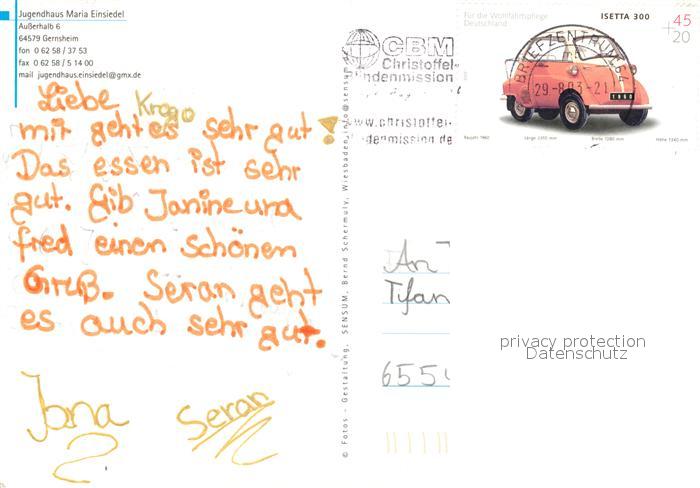 Jugendhaus Maria Einsiedel
Außerhalb 6
64579 Gernsheim
fon 0 62 58 / 37 53
fax 0 62 58 / 5 14 00
mail jugendhaus.einsiedel@gmx.de
Liebe Krogo
mir geht es sehr gut!
Das essen ist sehr
gut. Gib Janine und
fred einen schönen
Gruß. Seran geht
es auch sehr gut.
Jana
Seran
© Fotos - Gestaltung, SENSUM, Bernd Schermuly, Wiesbaden, info@sensum.de
CBM
Christoffel-
indenmission
www.christoffel-
ndenmission.de
Für die Wohlfahrtspflege
Deutschland
ISETTA 300
45
+20
BRIEFZENTRUM 64
29-8.03-21
1960
Baujahr 1960 Länge 2355 mm Breite 1380 mm Höhe 1340 mm
An
Tifan
655
privacy protection
Datenschutz